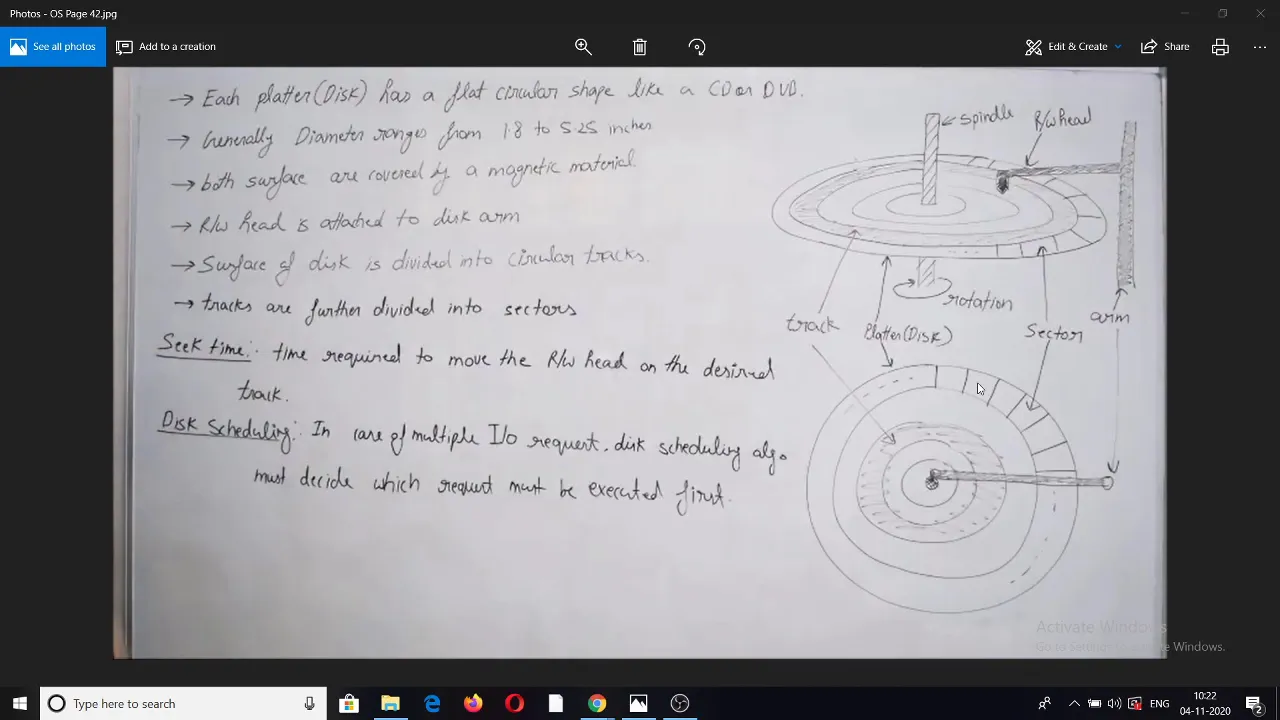 Photos - OS Page 42.jpg
See all photos
Add to a creation
Edit & Create
Share
→ Each platter(Disk) has a flat circular shape like a CD or DVD.
→ Generally Diameter ranges from 1.8 to 5.25 inches
→ both surface are covered by a magnetic material.
→ R/w head is attached to disk arm
→ Surface of disk is divided into circular tracks.
→ tracks are further divided into sectors
Seek time:- time required to move the R/w head on the desired
track.
Disk Scheduling:- In case of multiple I/o request, disk scheduling algo
must decide which request must be executed first.
spindle
R/w head
rotation
track
Platter(Disk)
Sector
arm
Activate Windows
Go to Settings to activate Windows.
Type here to search
ENG
10:22
04-11-2020
2